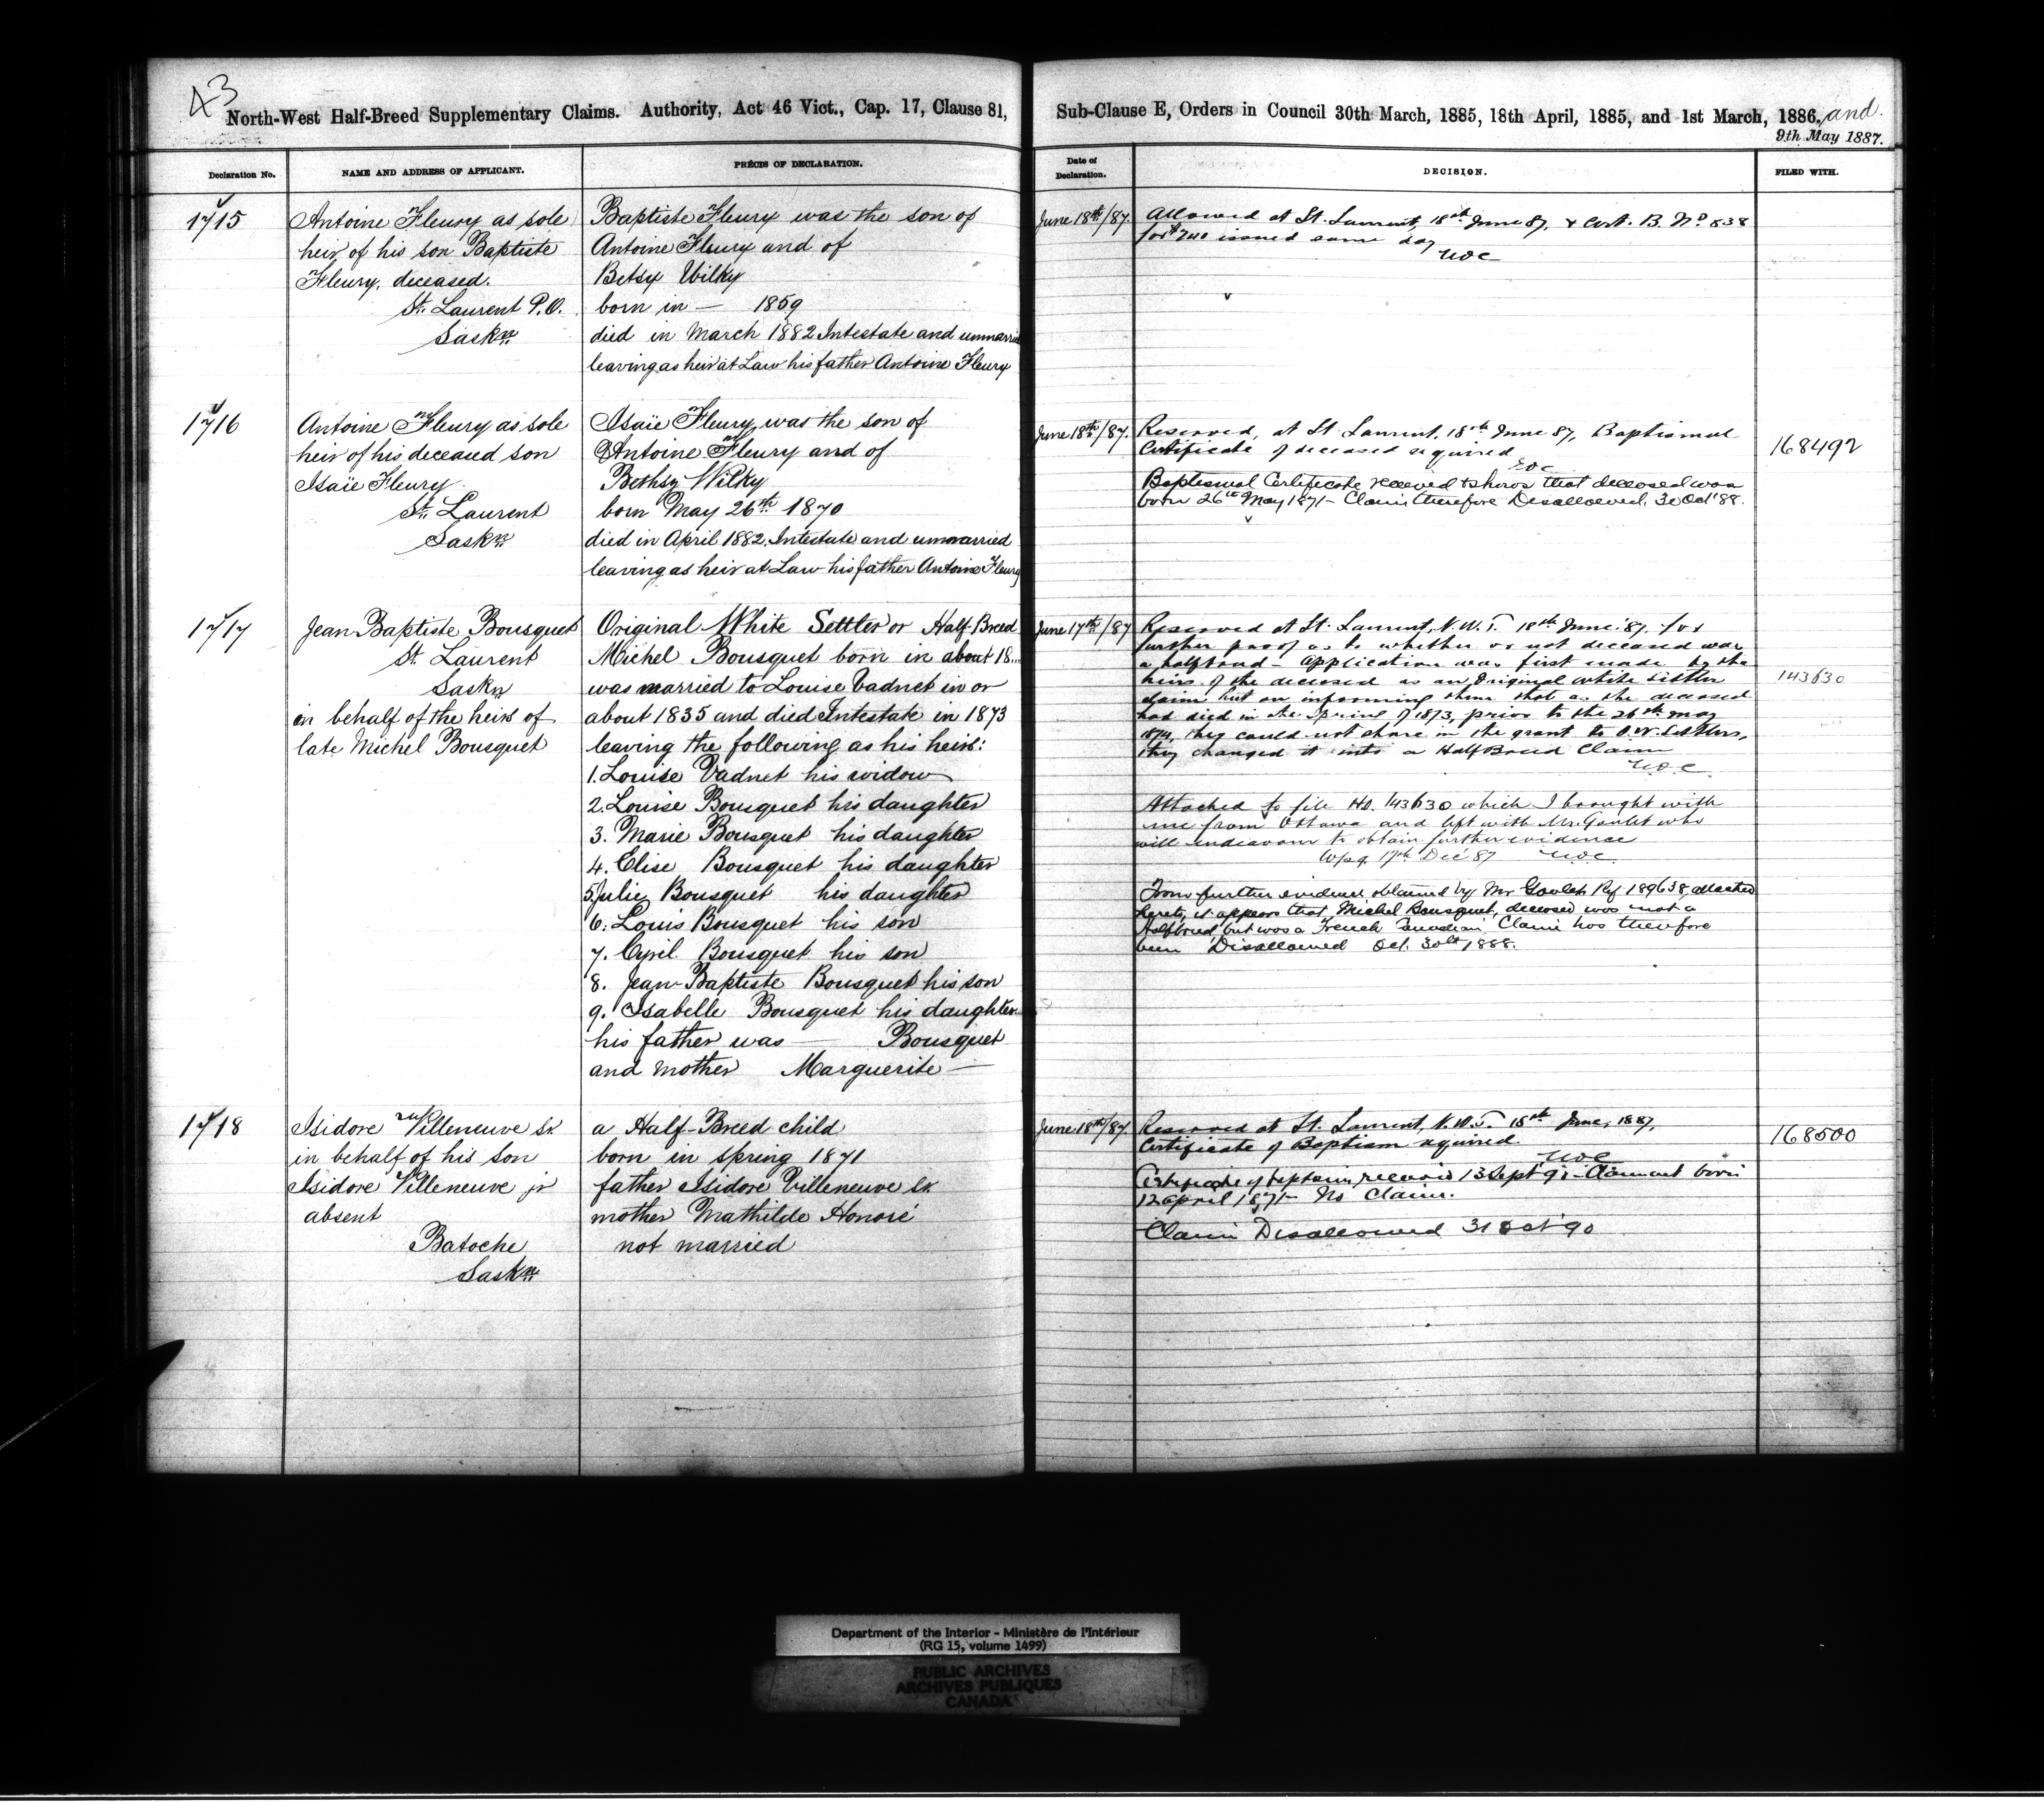 43
North-West Half-Breed Supplementary Claims. Authority, Act 46 Vict., Cap. 17, Clause 81,
Declaration No.
NAME AND ADDRESS OF APPLICANT.
PRÉCIS OF DECLARATION.
1715
Antoine Fleury as sole
heir of his son Baptiste
Fleury, deceased.
St. Laurent P.O.
Saskn
Baptiste Fleury was the son of
Antoine Fleury and of
Betsy Wilky
born in — 1859
died in March 1882 Intestate and unmarried
leaving as heir at Law his father Antoine Fleury
1716
Antoine Fleury as sole
heir of his deceased son
Isaïe Fleury
St. Laurent
Saskn
Isaïe Fleury was the son of
Antoine Fleury and of
Bethsy Wilky
born May 26th 1870
died in April 1882. Intestate and unmarried
leaving as heir at Law his father Antoine Fleury
1717
Jean-Baptiste Bousquet
St. Laurent
Saskn
in behalf of the heirs of
late Michel Bousquet
Original White Settler or Half-Breed
Michel Bousquet born in about 18...
was married to Louise Vadnet in or
about 1835 and died Intestate in 1873
leaving the following as his heirs:
1. Louise Vadnet his widow
2. Louise Bousquet his daughter
3. Marie Bousquet his daughter
4. Elise Bousquet his daughter
5. Julie Bousquet his daughter
6. Louis Bousquet his son
7. Cyril Bousquet his son
8. Jean-Baptiste Bousquet his son
9. Isabelle Bousquet his daughter
his father was — Bousquet
and mother Marguerite —
1718
Isidore Villeneuve sr.
in behalf of his son
Isidore Villeneuve jr
absent
Batoche
Saskn
a Half-Breed child
born in spring 1871
father Isidore Villeneuve sr.
mother Mathilde Honoré
not married
Sub-Clause E, Orders in Council 30th March, 1885, 18th April, 1885, and 1st March, 1886, and
9th May 1887.
Date of
Declaration.
DECISION.
FILED WITH.
June 18th/87.
Allowed at St. Laurent, 18th June 87, & Cert. B. No. 838
for $240 issued same day
June 18th/87.
Reserved, at St Laurent, 18th June 87, Baptismal
Certificate of deceased required
Baptismal Certificate received & shows that deceased was
born 26th May 1871 - Claim therefore Disallowed. 30 Oct '88.
168492
June 17th/87
Reserved at St. Laurent, N.W.T. 18th June '87. for
further proof as to whether or not deceased was
a halfbreed - Application was first made by the
heirs of the deceased as an Original white settler
claim but on informing them that as the deceased
had died in the Spring of 1873, prior to the 26th May
1874, they could not share in the grant to O.W. Settlers,
they changed it into a HalfBreed Claim
143630
Attached to file No. 143630 which I brought with
me from Ottawa and left with Mr. Goulet who
will endeavour to obtain further evidence
Wpg. 17th Dec 87
From further evidence obtained by Mr Goulet Ref 189638 attached
hereto, it appears that Michel Bousquet, deceased was not a
Halfbreed but was a French Canadian. Claim has therefore
been Disallowed Oct. 30th 1888.
June 18th/87
Reserved at St. Laurent, N.W.T. 18th June, 1887,
Certificate of Baptism required.
Certificate of baptism received 13 Sept 90 - Claimant born
12 April 1871 - No Claim.
Claim Disallowed 31 Oct 90
168500
Department of the Interior - Ministère de l'Intérieur
(RG 15, volume 1499)
PUBLIC ARCHIVES
ARCHIVES PUBLIQUES
CANADA